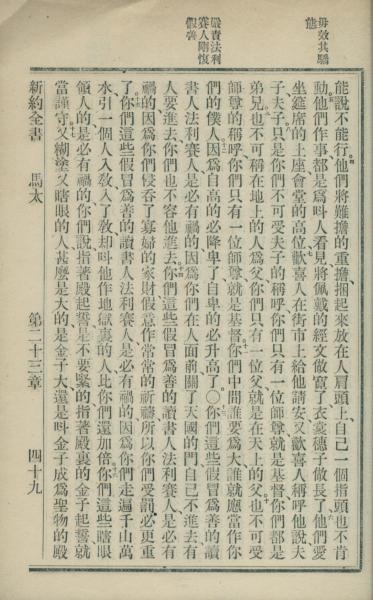 毋效其驕
能
嚴責法利
賽人剛愎
假善
能說不能行他們將難擔的重擔捆起來放在人肩頭上自己一個指頭也不肯
動他們作事都是爲呌人看見將佩戴的經文做寬了衣裳穗子做長了他們愛
坐筵席的上座會堂的高位歡喜人在街市上給他請安又歡喜人稱呼他說夫
子夫子只是你們不可受夫子的稱呼你們只有一位師尊就是基督你們都是
弟兄也不可稱在地上的人爲父你們只有一位父就是在天上的父也不可受
師尊的稱呼你們只有一位師尊就是基督你們中間誰要爲大誰就應當作你
們的僕人因爲自高的必降卑了自卑的必升高了〇你們這些假冒爲善的讀
書人法利賽人是必有禍的因爲你們在人面前關了天國的門自己不進去有
人要進去你們也不容他進去你們這些假冒爲善的讀書人法利賽人是必有
禍的因爲你們侵吞了寡婦的家財假意作常常的祈禱所以你們受罰必更重
了你們這些假冒爲善的讀書人法利賽人是必有禍的因爲你們走遍千山萬
水引一個人入敎入了敎却呌他作地獄裏的人比你們還加倍你們這些瞎眼
領人的是必有禍的你們說指著殿起誓是不要緊的指著殿裏的金子起誓就
當謹守又糊塗又瞎眼的人甚麼是大的是金子大還是呌金子成爲聖物的殿
新約全書 馬太 第二十三章 四十九